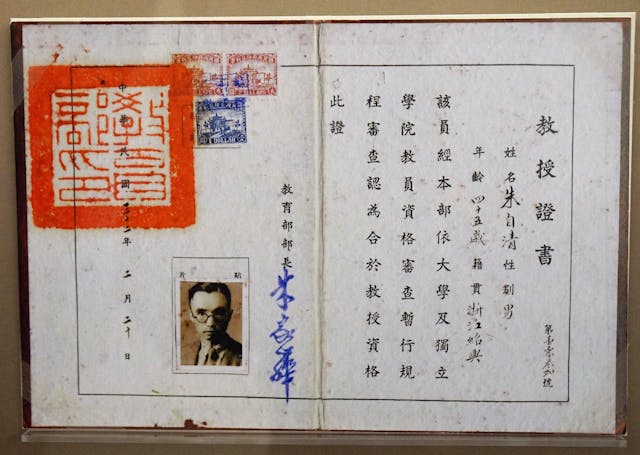 教授證書
姓名朱自清性別男
年齡四十五歲籍貫浙江紹興
該員經本部依大學及獨立
學院教員資格審查暫行規
程審查認為合於教授資格
此證
教育部部長朱家驊
貼
片
中華民國三十二年二月二十日